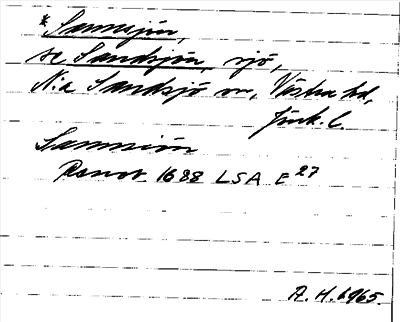 *Samsjön,
se Sandsjön, sjö,
N:a Sandsjö sn, Västra hd,
Jönk. l.
Samsiön
Rannt. 1688 LSA E 27
R. H. 1965.